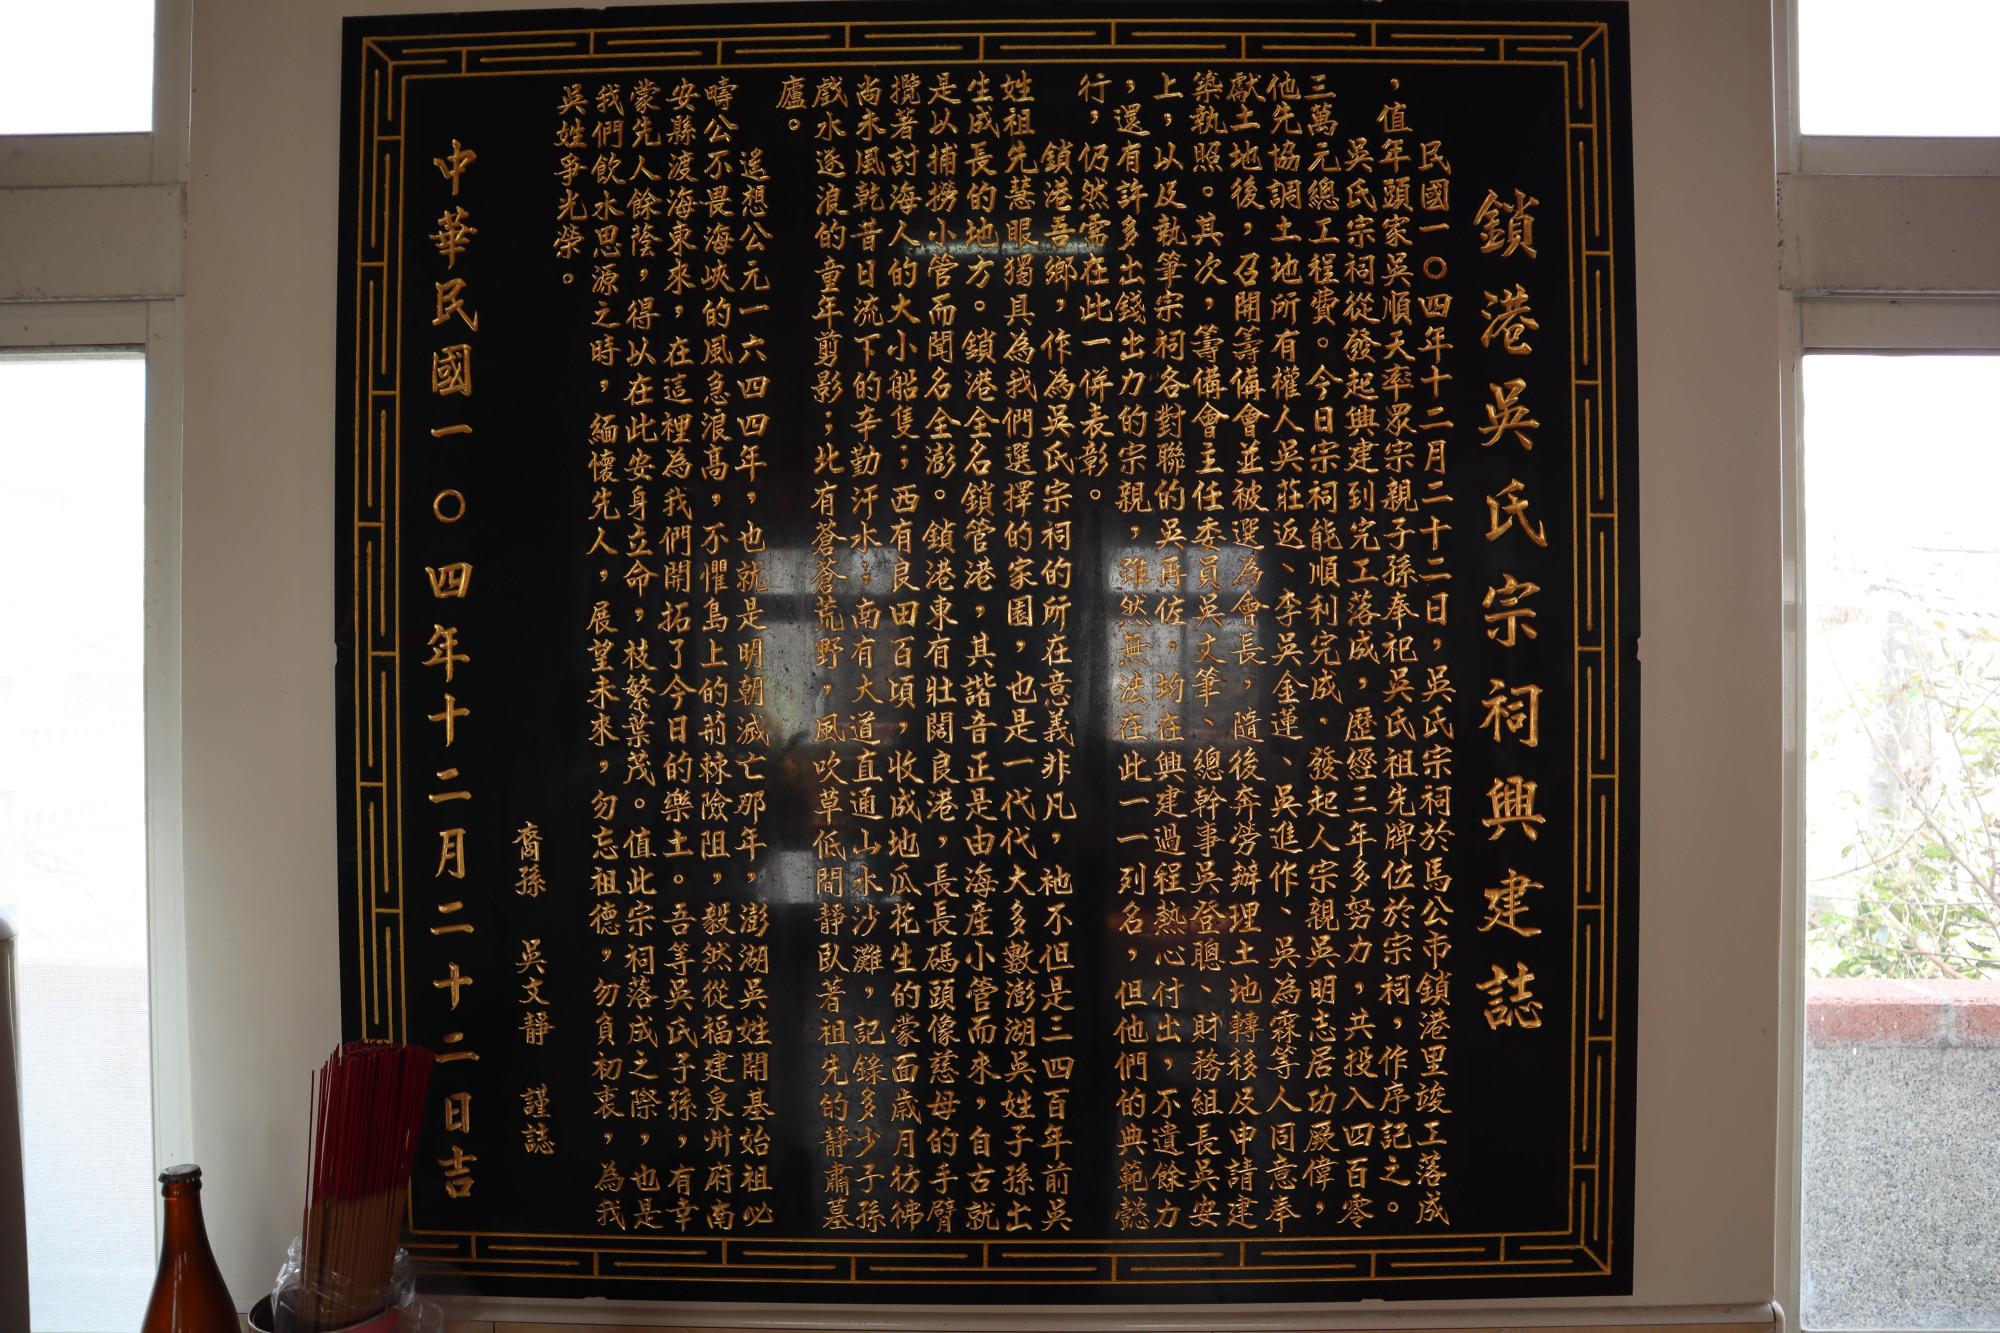 鎖港吳氏宗祠興建誌
民國一〇四年十二月二十二日，吳氏宗祠於馬公市鎖港里竣工落成
，值年頭家吳順天率眾宗親子孫奉祀吳氏祖先牌位於宗祠，作序記之。
吳氏宗祠從發起興建到完工落成，歷經三年多努力，共投入四百零
三萬元總工程費。今日宗祠能順利完成，發起人宗親吳明志居功厥偉，
他先協調土地所有權人吳莊返、李吳金蓮、吳進作、吳為霖等人同意奉
獻土地後，召開籌備會並被選為會長，隨後奔勞辦理土地轉移及申請建
築執照。其次，籌備會主任委員吳文筆、總幹事吳登聰、財務組長吳安
上，以及執筆宗祠各對聯的吳再佐，均在興建過程熱心付出，不遺餘力
，還有許多出錢出力的宗親，雖然無法在此一一列名，但他們的典範懿
行，仍然需在此一併表彰。
鎖港吾鄉，作為吳氏宗祠的所在意義非凡，祂不但是三四百年前吳
姓祖先慧眼獨具為我們選擇的家園，也是一代代大多數澎湖吳姓子孫出
生成長的地方。鎖港全名鎖管港，其諧音正是由海產小管而來，自古就
是以捕撈小管而聞名全澎。鎖港東有壯闊良港，長長碼頭像慈母的手臂
攬著討海人的大小船隻；西有良田百頃，收成地瓜花生的蒙面歲月彷彿
尚未風乾昔日流下的辛勤汗水；南有大道直通山水沙灘，記錄多少子孫
戲水逐浪的童年剪影；北有蒼蒼荒野，風吹草低間靜臥著祖先的靜肅墓
廬。
遙想公元一六四四年，也就是明朝滅亡那年，澎湖吳姓開基始祖必
疇公不畏海峽的風急浪高，不懼島上的荊棘險阻，毅然從福建泉州府南
安縣渡海東來，在這裡為我們開拓了今日的樂土。吾等吳氏子孫，有幸
蒙先人餘蔭，得以在此安身立命，枝繁葉茂。值此宗祠落成之際，也是
我們飲水思源之時，緬懷先人，展望未來，勿忘祖德，勿負初衷，為我
吳姓爭光榮。
裔孫 吳文靜 謹誌
中華民國一〇四年十二月二十二日吉